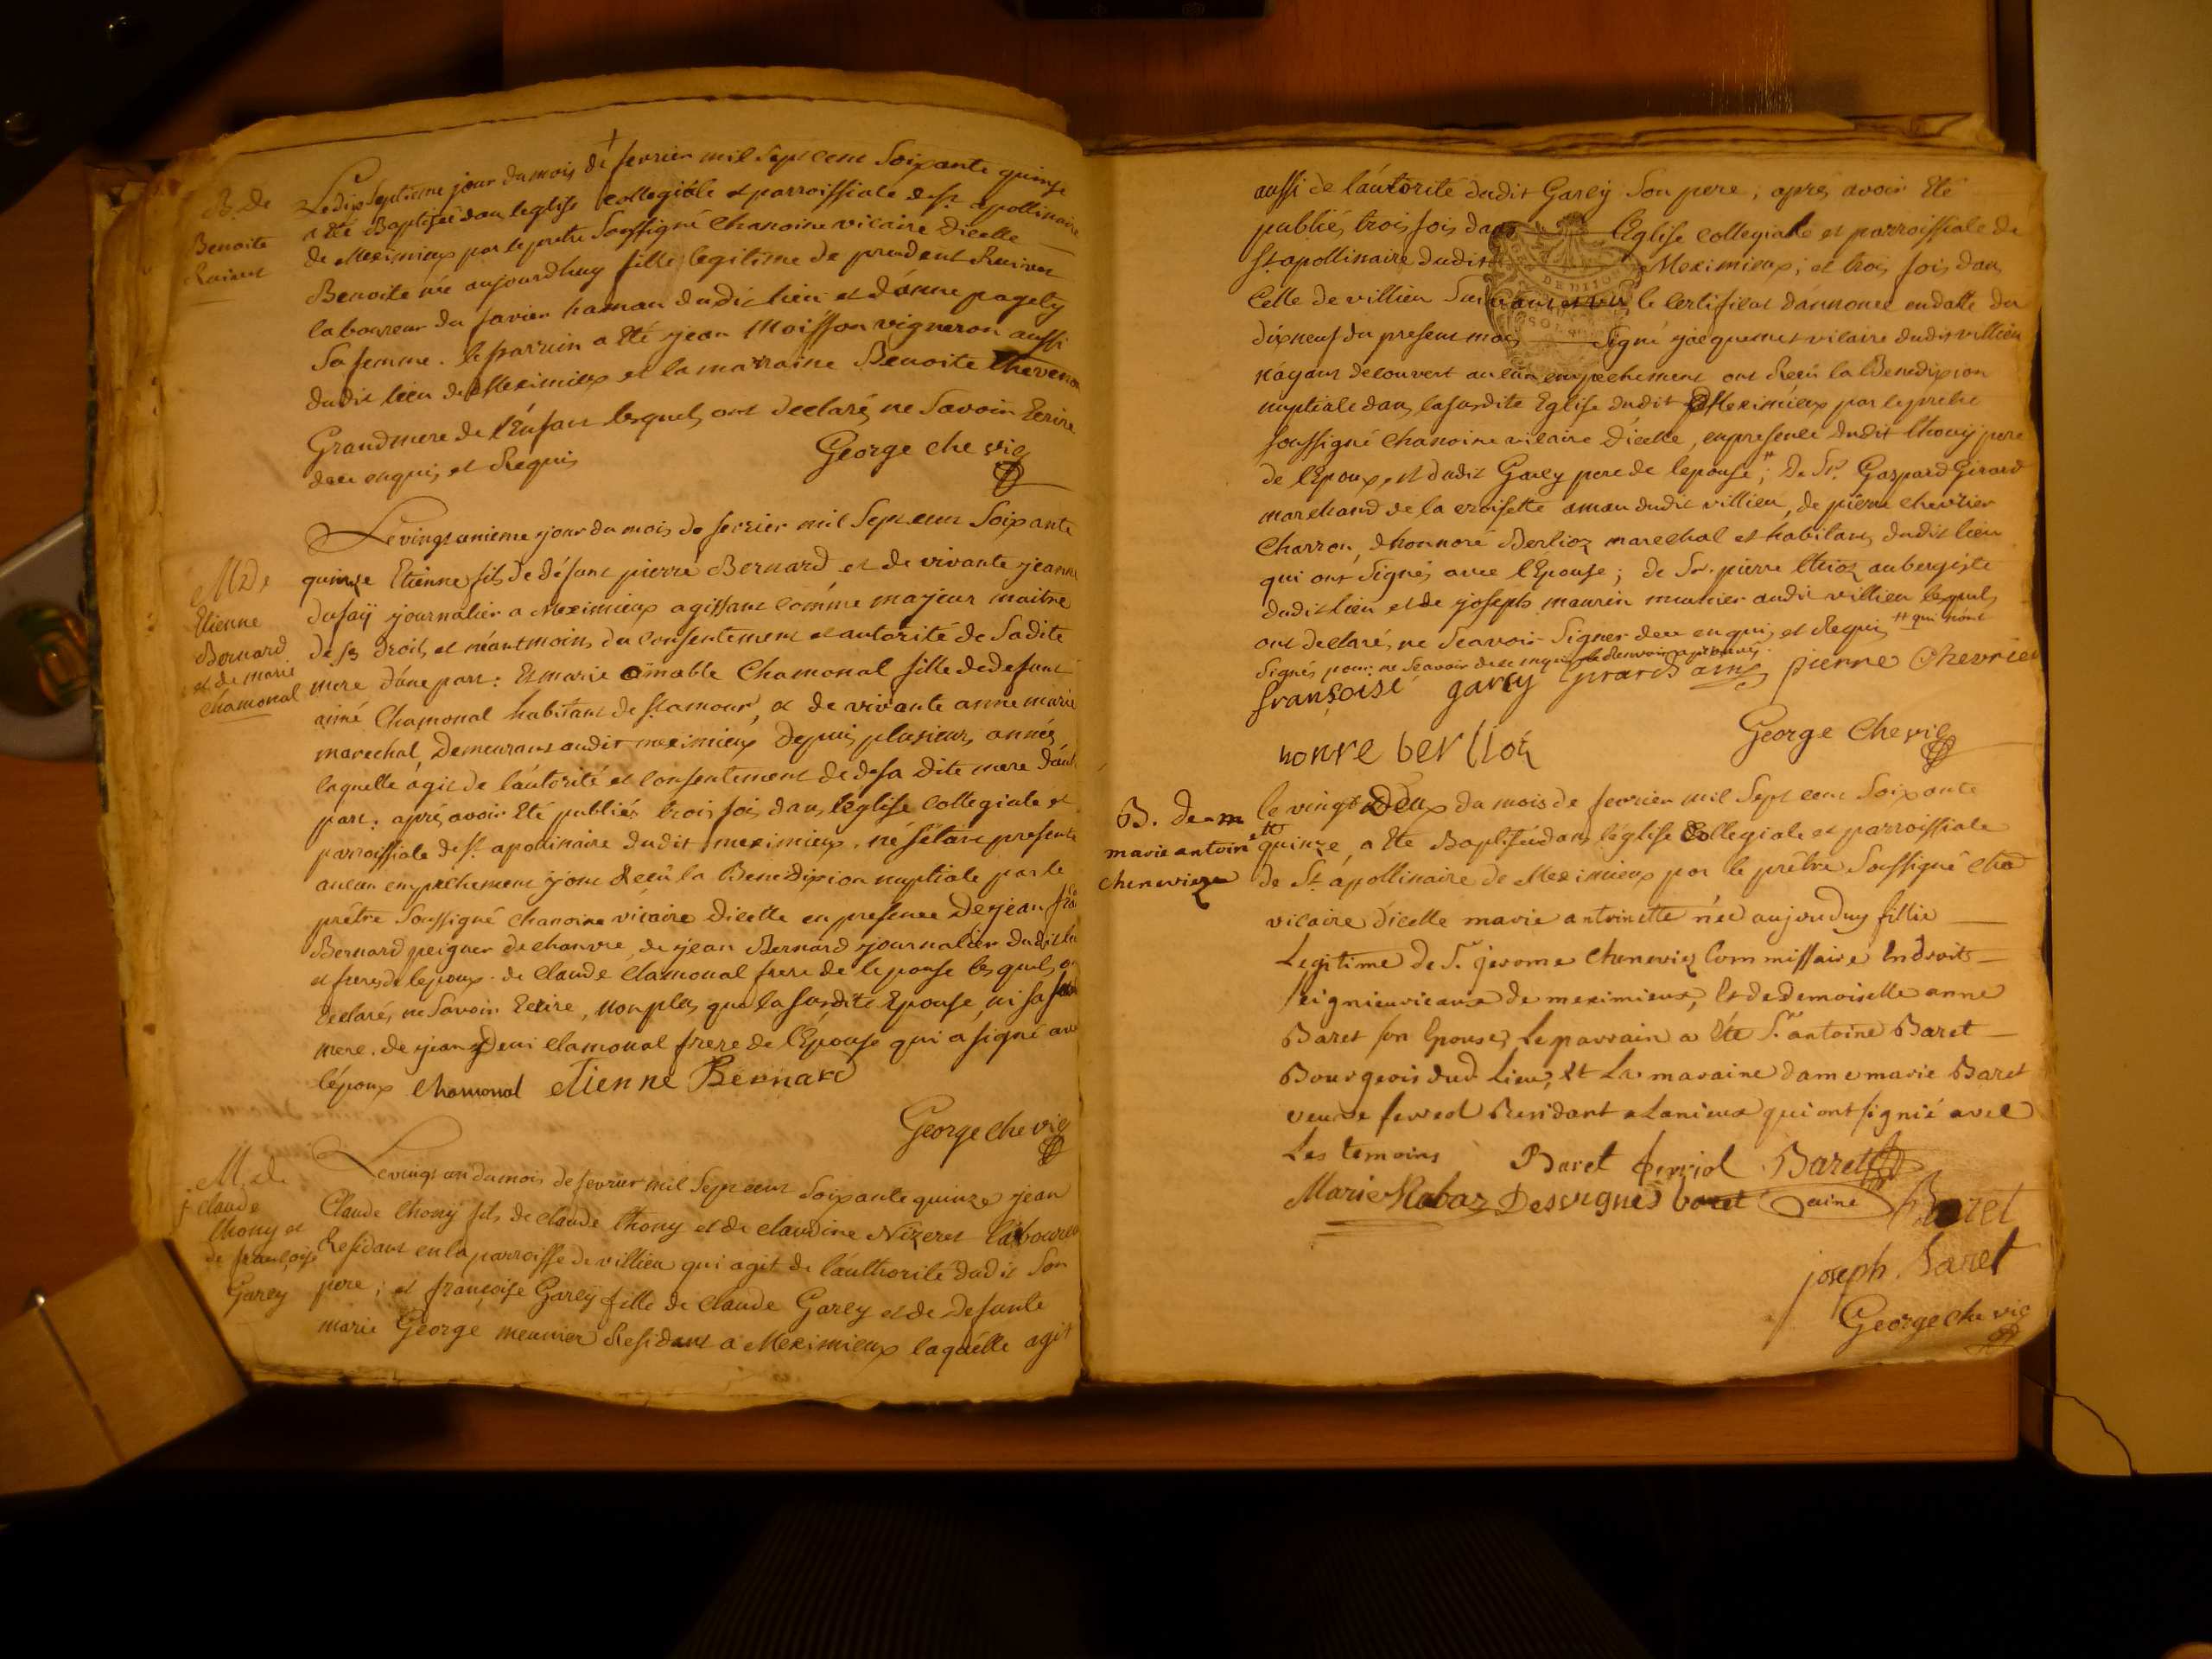 B. de
Benoite
Ruivet
Le dix Septieme jour du mois de fevrier mil Sept cent Soixante quinze
a été Baptizée dans l'eglise Collegiale et parroissiale de St apollinaire
de Meximieux par le pretre Soussigné Chanoine vicaire d'icelle
Benoite née aujourdhuy fille legitime de prudent Ruivet
laboureur du favier hamau dudit lieu et d'anne pagety
Sa femme. le parrein a été jean Moisson vigneron aussi
dudit lieu de Meximieux et la marraine Benoite Thevenon
Grandmere de l'Enfant lesquels ont declarés ne Savoir Ecrire
de ce enquis et Requis
George chevic
M. de
Etienne
Bernard
et de marie
Chamonal
Le vingt unieme jour du mois de fevrier mil Sept cent Soixante
quinze Etienne fils de défunt pierre Bernard et de vivante jeanne
dufaÿ journalier a Meximieux agissant comme majeur maitre
de ses droits et néantmoins du consentement et autorité de Sadite
mere d'une part: Et marie aimable Chamonal fille de defunt
aimé Chamonal habitant de St amour, et de vivante anne marie
marechal, Demeurans audit meximieux depuis plusieurs années
laquelle agit de l'autorité et consentement de desa dite mere d'autre
part: après avoir Eté publiés trois fois dans l'Eglise Collegiale et
parroissiale de St apolinaire dudit meximieux. ne S'étant presenté
aucun empêchement y ont Receu la Benedixion nuptiale par le
prêtre Soussigné Chanoine vicaire d'icelle en presence de jean
Bernard peigneur de chanvre, de jean Bernard journalier dudit lieu
et freres de lepoux. de Claude Chamonal frere de lepouse lesquels ont
declarés ne Savoir Ecrire, non plus que la Susdite Epouse, ni sa
mere. de jean Deni Chamonal frere de l'Epouse qui a signé avec
lépoux Chamonal etienne Bernard
George chevic
M. de
j claude
thony et
de françoise
Garcy
Le vingt un du mois de fevrier mil Sept cent Soixante quinze jean
Claude thonÿ fils de claude thony et de claudine Nizeret laboureur
Residant en la parroisse de villieu qui agit de l'authorité dudit Son
pere; et françoise Garcÿ fille de claude Garcy et de defunte
marie George meunier Residant a Meximieux laquelle agit
aussi de l'autorité dudit Garcÿ Son pere; aprés avoir Eté
publiés trois fois dans l'Eglise Collegiale et parroissiale de
St apollinaire dudit Meximieux; et trois fois dans
Celle de villieu Suivant le Certificat d'annonce en datte du
dixneuf du present mois Signé jacquemet vicaire dudit villieu
n'ayant decouvert aucun empechement ont Receu la Benedixion
nuptiale dans lasusdite Eglise dudit Meximieux par le pretre
soussigné Chanoine vicaire d'icelle, en presence dudit thonÿ pere
de l'Epoux, et dudit Garcy pere de lepouse,# de Sr. Gaspard Girard
marchand de la croisette aman dudit villieu, de pierre chevrier
Charron, d'honnoré Berlioz marechal et habitans dudit lieu
qui ont Signés avec l'Epouse; de Sr. pierre thioz aubergiste
dudit lieu et de joseph maurin meunier audit villieu lesquels
ont declaré, ne Scavoir Signer de ce enquis et Requis # qui n'ont
Signés pour ne Scavoir de ce enquis
françoise garcy Girard ainé pierre chevrier
George chevic
honre berlioz
B. de m
marie antoinette
Cheneviere
le vingt Deux du mois de fevrier mil Sept cent Soixante
quinze, a Eté Baptisée dans l'église Collegiale et parroissiale
de St. apollinaire de Meximieux par le prêtre Soussigné
vicaire d'icelle marie antoinette née aujourduy fillie
Legitime de Sr. jerome cheneviez Commissaire En droits
seignieurieaux de meximieux, Et de Demoiselle anne
Baret son Epouse, Le parrain a Eté Sr. antoine Baret
Bourgeois dud. Lieu, Et La maraine dame marie Baret
veuve ferreol Residant a Lanieux qui ont signié avec
Les temoins
Baret ferriol Baret
Marie Rabaz Desvignes baret ainé Baret
joseph Baret
George chevic